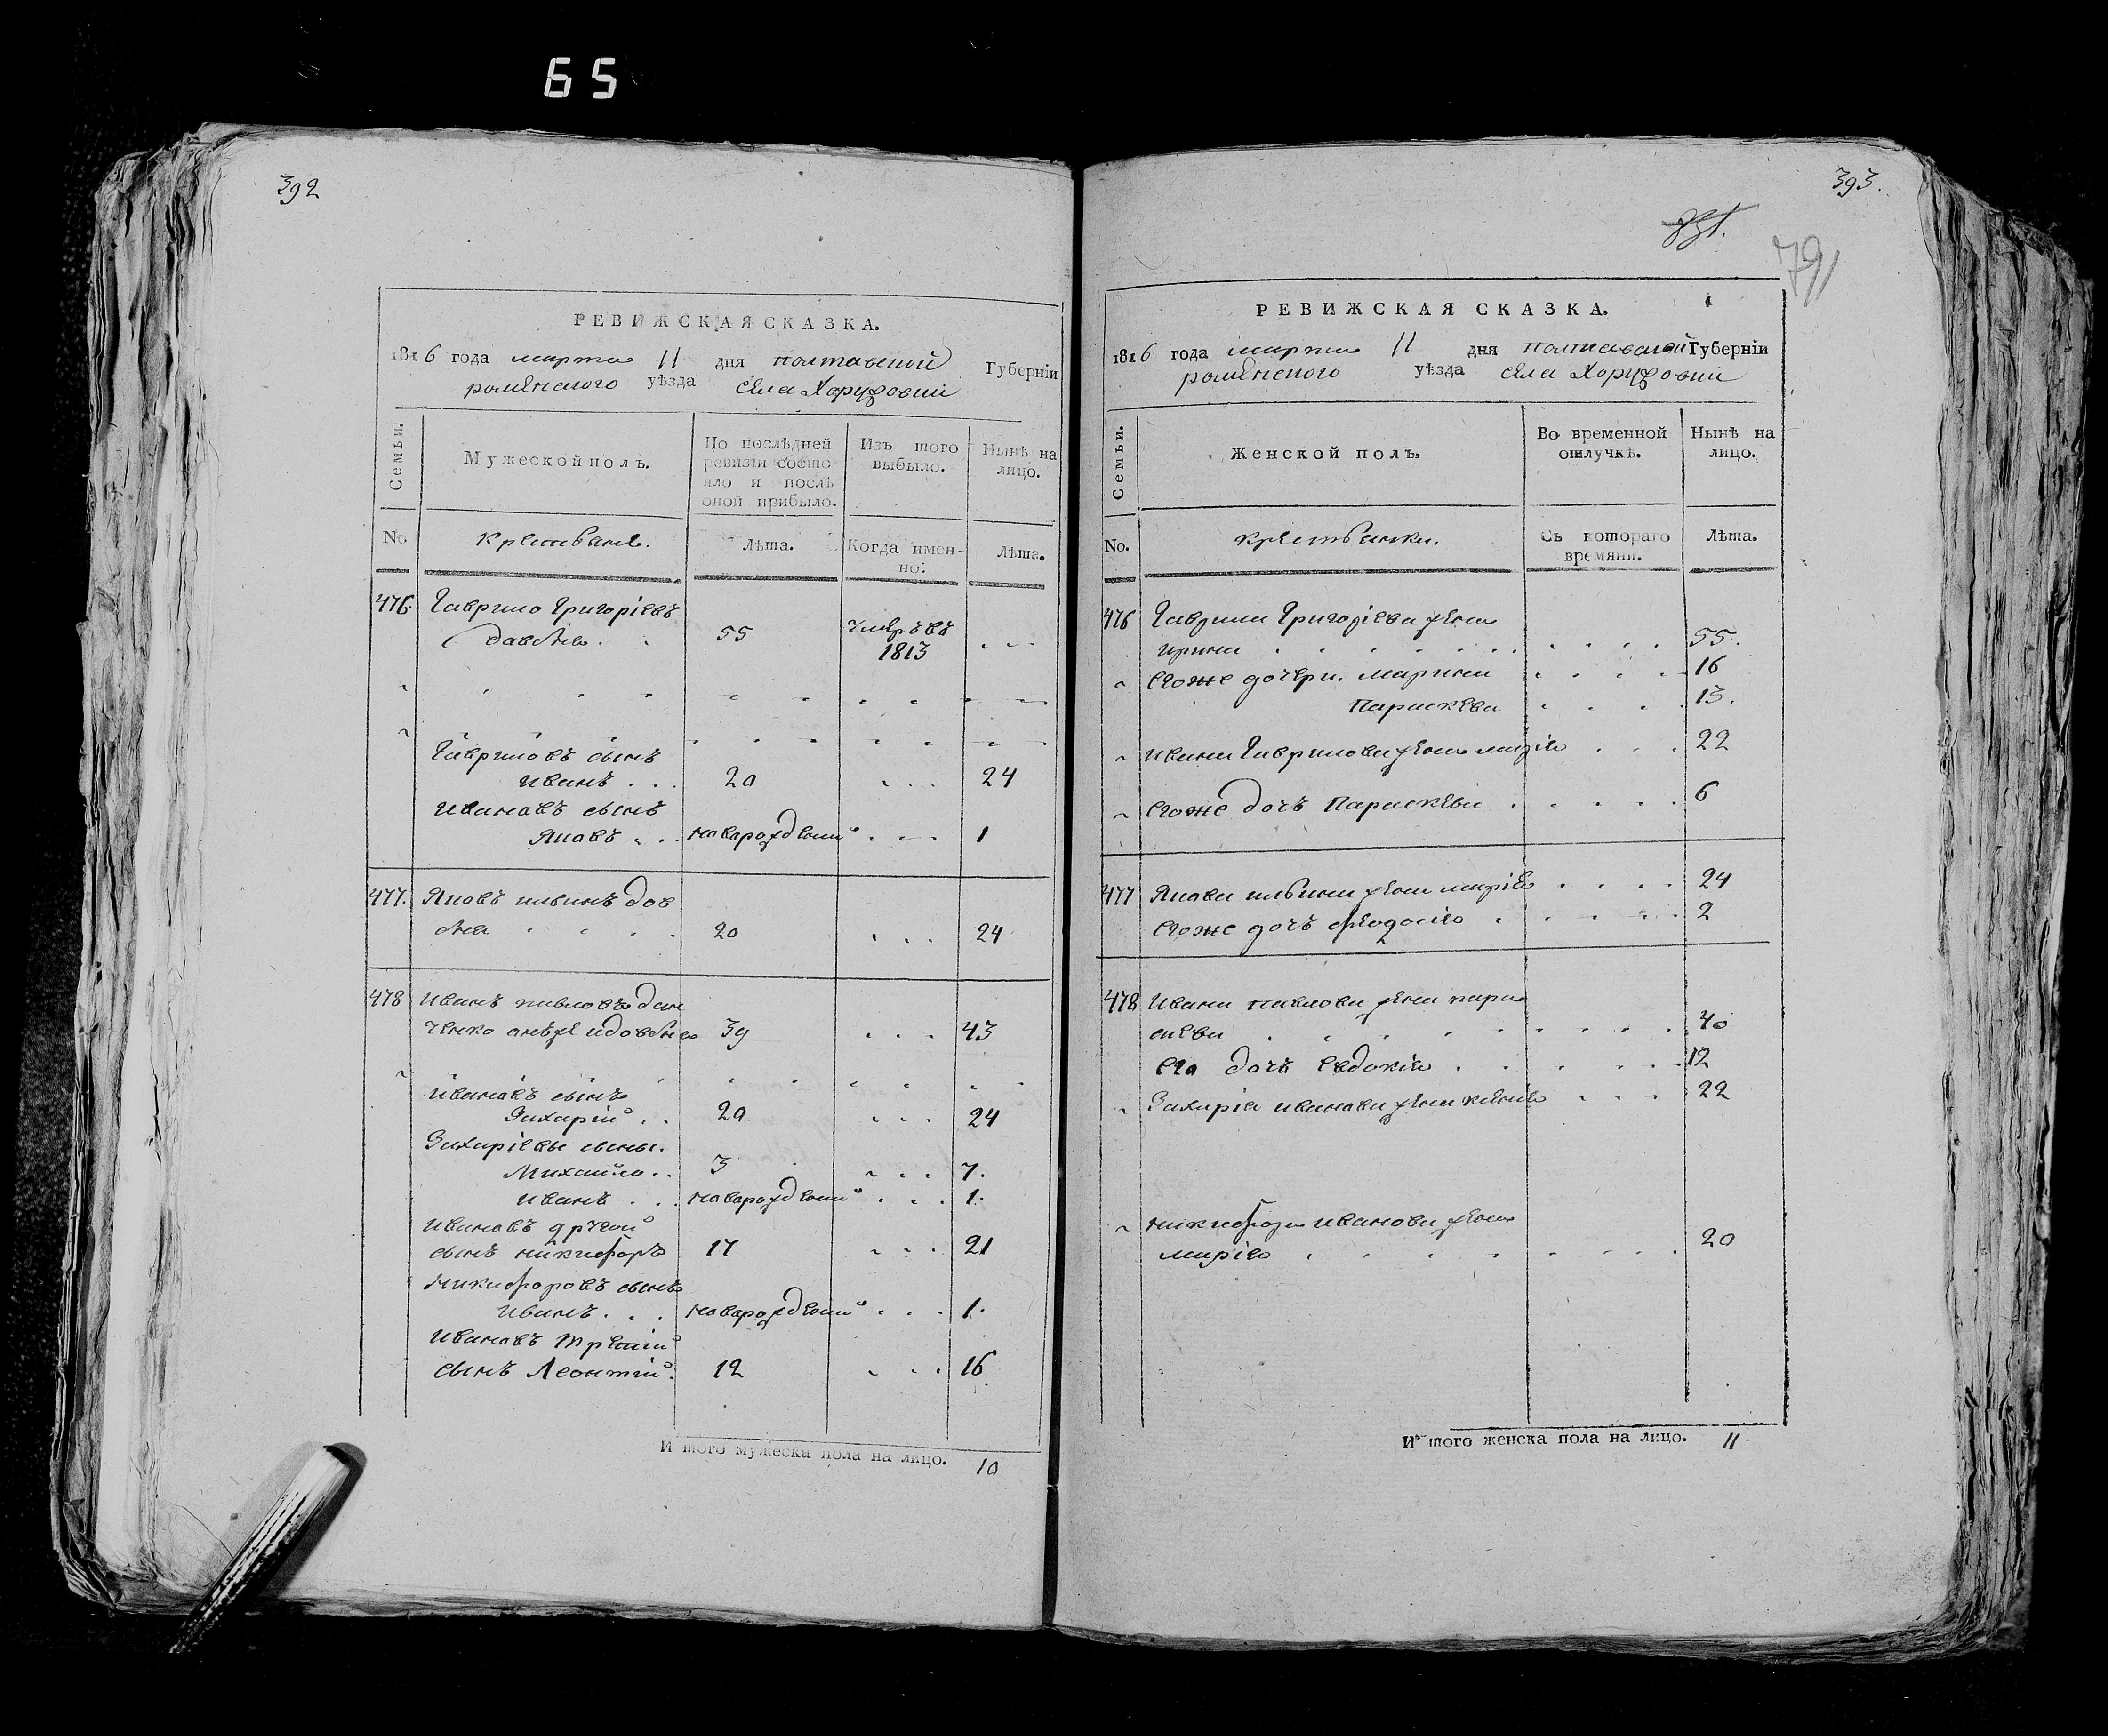 65
392
РЕВИЖСКАЯ СКАЗКА.
1816 года марта 11 дня полтавской Губерніи
роменского уѣзда села Хоружовки
Семьи.
Мужеской полъ.
По послѣдней ревизіи состо
яло и послѣ
оной прибыло.
Изъ того
выбыло.
Нынѣ на
лицо.
No
крестьяне.
Лѣта.
Когда имен-
но:
Лѣта.
476. Гаврило Григоріевъ
55 умре въ
1813
Гавриловъ сынъ
иванъ . . . 20 . . . 24
ивановъ сынъ
Яковъ . . . новорожденный . . . 1
477. Яковъ ильинъ дов
20 . . . 24
478 иванъ павловъ
39 . . . 43
ивановъ сынъ
Захарій . . 20 . . . 24
Захаріевы сыны.
Михайло . . 3 . . . 7.
иванъ . . . новорожденный . . . 1.
ивановъ другой
сынъ никифоръ 17 . . . 21
Никифоровъ сынъ
иванъ . . . новорожденный . . . 1.
ивановъ третій
сынъ Леонтій. 12 . . . 16
И того мужеска пола на лицо. 10
393.
791
РЕВИЖСКАЯ СКАЗКА.
1816 года марта 11 дня полтавской Губерніи
роменского уѣзда села Хоружовки
Семьи.
Женской полъ.
Во временной
отлучкѣ.
Нынѣ на
лицо.
No.
крестьянки.
Съ котораго
времяни.
Лѣта.
476 Гаврила Григоріева жена
ирина . . . 55.
Егоже дочери. марина . . . 16
Параскева . . . 13.
ивана Гаврилова жена марія . . . 22
Егоже дочь Параскева . . . 6
477 Якова ильина жена марія . . . 24
Егоже дочь феодосія . . . 2
478 ивана павлова жена пара
скева . . . 40
Его дочь Евдокія . . . 12
Захарія иванова жена ксенія . . . 22
никифора иванова жена
марія . . . 20
И того женска пола на лицо. 11